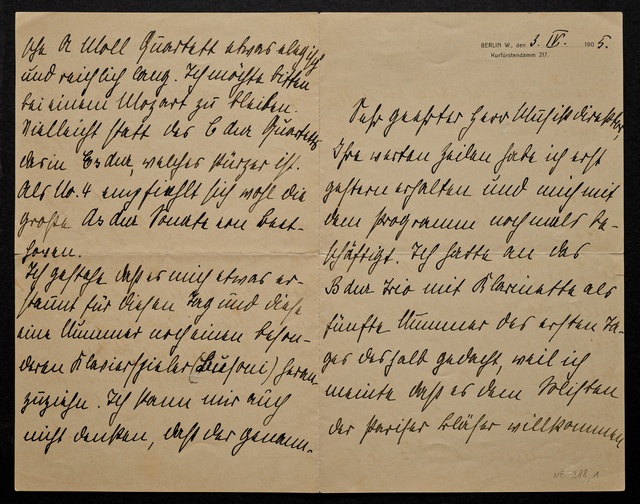 BERLIN W., den 3. IV. 1905.
Kurfürstendamm 217.
Sehr geehrter Herr Musikdirektor,
Ihre werten Zeilen habe ich erst
gestern erhalten und mich mit
dem Programm nochmals be-
schäftigt. Ich hatte an das
B dur Trio mit Klarinette als
fünfte Nummer des ersten Ta-
ges deshalb gedacht, weil ich
meinte daß es dem Solisten
der Pariser Bläser willkommen
A Moll Quartett etwas elegisch
und reichlich lang. Ich möchte bitten
bei einem Mozart zu bleiben.
Vielleicht statt des C dur Quartetts
das in Es dur, welches kürzer ist.
Als No. 4 empfiehlt sich wohl die
große As dur Sonate von Beet-
hoven.
Ich gestehe daß es mich etwas er-
staunt für diesen Tag und diese
eine Nummer noch einen beson-
deren Klavierspieler (Busoni) heran
zuziehn. Ich kann mir auch
nicht denken, daß der genann-